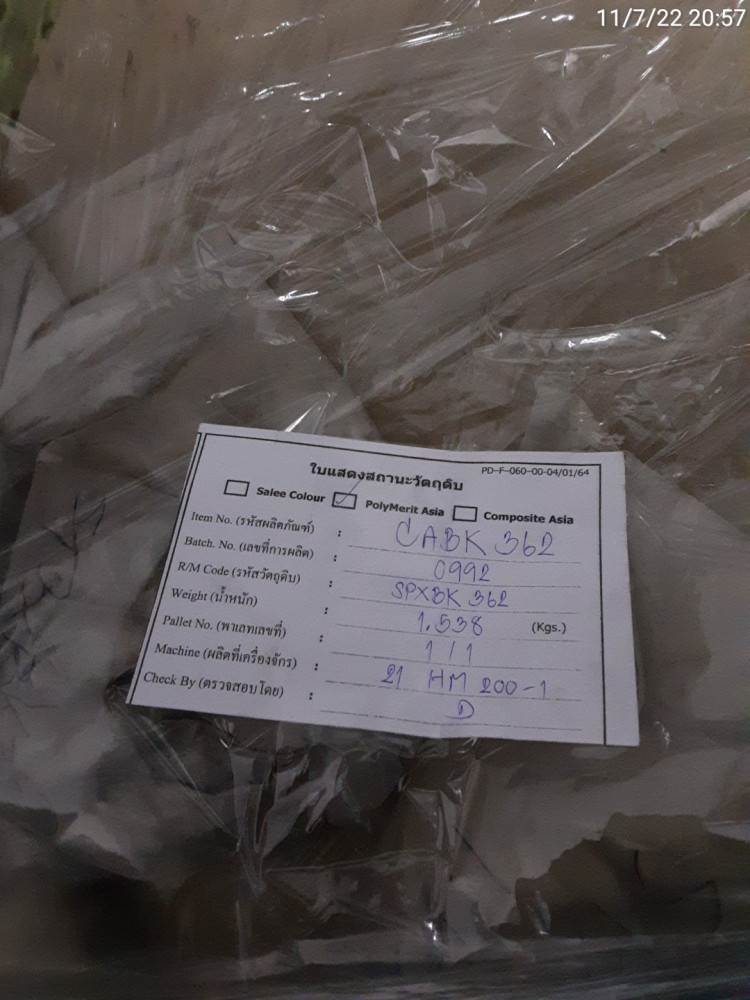 11/7/22 20:57
PD-F-060-00-04/01/64
ใบแสดงสถานะวัตถุดิบ
Salee Colour PolyMerit Asia Composite Asia
Item No. (รหัสผลิตภัณฑ์) : CABK 362
Batch. No. (เลขที่การผลิต) : 0992
R/M Code (รหัสวัตถุดิบ) : SPXBK 362
Weight (น้ำหนัก) : 1.538 (Kgs.)
Pallet No. (พาเลทเลขที่) : 1/1
Machine (ผลิตที่เครื่องจักร) : 21 HM 200-1
Check By (ตรวจสอบโดย) : D